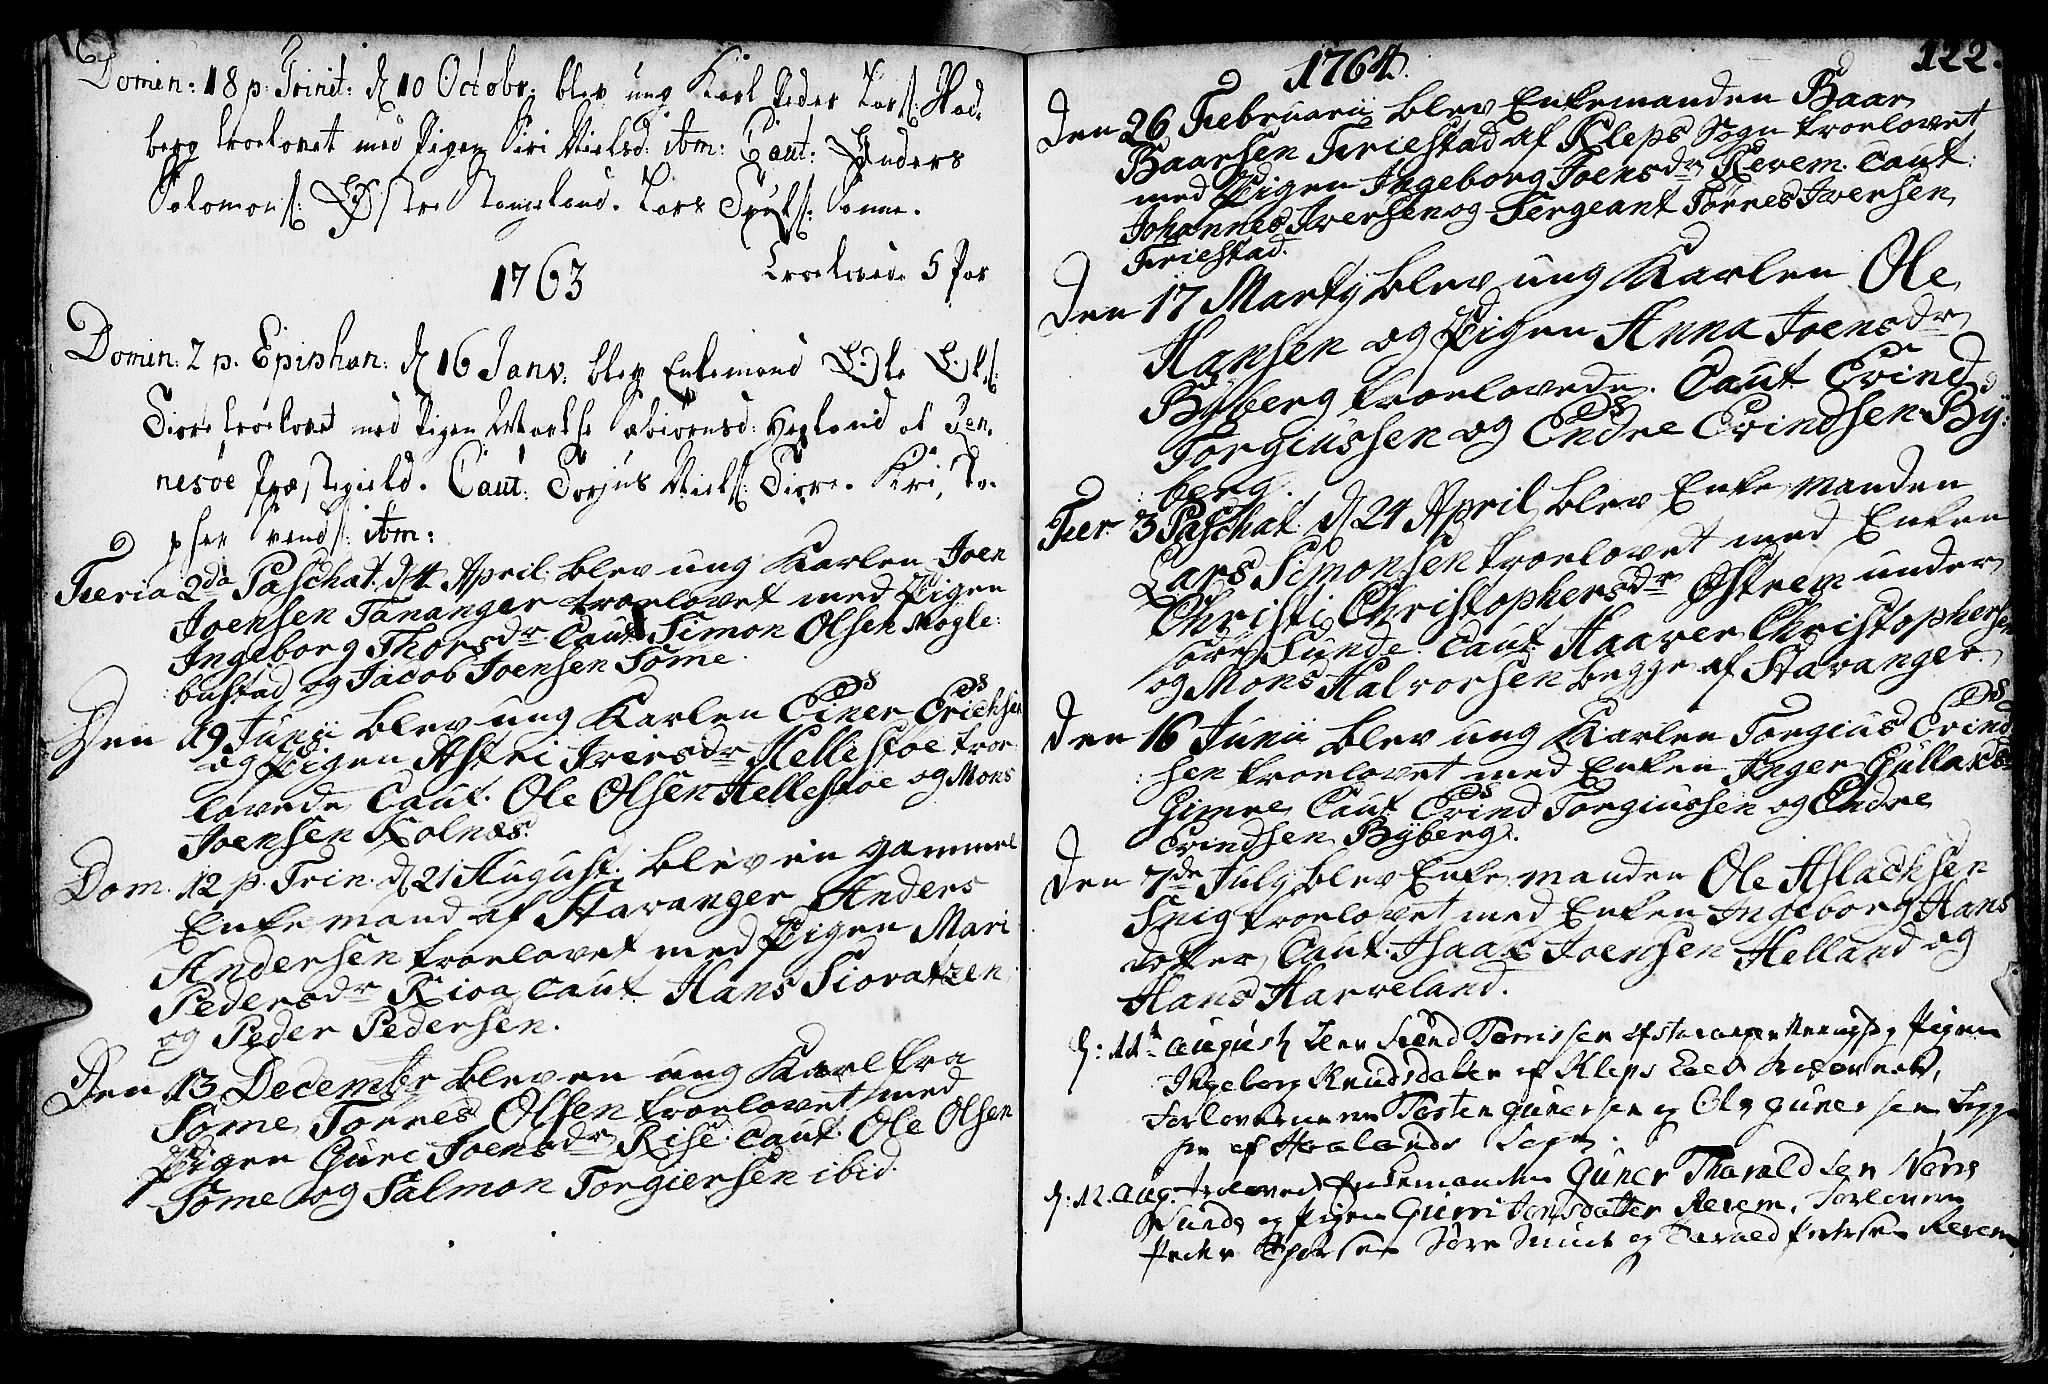 Domin: 18 p. Trinit: d 10 Octobr: blev ung Karl Peder Lars: Had,
berg troelovet med Pigen Siri Nielsd: ibm: Caut: Anders
Salomons: Østre Stangeland. Lars Some.
1763
Troelovede 5 Par
Domin: 2 p. Epiphan: d 16 Janv: blev Enkemand Ole Ols:
Tiore troelovet med Pigen Marthe Hegland af Fen,
nesöe Præstegield. Caut: Torjus Niels: Tiore. Kri, to,
pher Svends: ibm:
Feeria 2da Paschat. d 4 April: blev ung Karlen Joen
Joensen Tananger troelovet med Pigen
Ingeborg Thorsdr Caut Simon Olsen Mogle:
: bustad og Jacob Joensen Sôme.
Den 19 Junii blev ung Karlen Einer Erichsen
og Pigen Astri Iversdr Hellestöe troe
lovede Caut. Ole Olsen Hellestöe og Mons
Joensen Kolnæs.
Dom. 12 p. Trin. d 21 August: blev en gammel
Enkemand af Stavanger Anders
Andersen troelovet med Pigen Mari
Pedersdr Rioa Caut Hans Siovatzen
og Peder Pedersen.
Den 13 Decembr blev en ung Karl fra
Sôme Törres Olsen troelovet med
Pigen Guri Joensdr Rise. Caut. Ole Olsen
Sôme og Salmon Torgiersen ibid.
122.
1764.
Den 26 Februarii blev Enkemanden Baar
Baarsen Friestad af Kleps Sogn troelovet
med Pigen Ingeborg Joensdr Revem. Caut:
Johannes Iversen og Sergeant Törres Iversen
Friestad.
Den 17 Martij blev ung Karlen Ole
Hansen og Pigen Anna Joensdr
Byberg troelovede. Caut Evind
Torgiussen og Endre Evindsen By:
: berg.
Feer. 3 Paschat. d 24 April blev Enke manden
Lars Simonsen troelovet med Enken
Christi Christophersdr Östrem under
Sunde. Caut. Haaver Christophersen
og Mons Halvorsen begge af Stavanger.
Den 16 Junii blev ung Karlen Torgius Evind
: sen troelovet med Enken Inger Gullaksdr
Gimre Caut Evind Torgiussen og Endre
Evindsen Byberg.
Den 7de July blev Enke manden Ole Aslachsen
Snig troelovet med Enken Ingeborg Hans
datter Caut. Isaak Joensen Helland og
Hans Harveland.
d: 11te August blev Svend Tørrissen af Stavanger og Pigen
Ingeborg Knudsdatter af Kleps
Forloverne Tosten gunersen og Ole gunersen begge
af Haalands Sogn.
d: 12. Aug. trolovet Enkemanden Guner Tharaldsen Nøre
Sunde og Pigen Gurri Jonsdatter Revem, Forlovere
Peder Søre Sunde og Tarald Pedersen Revem